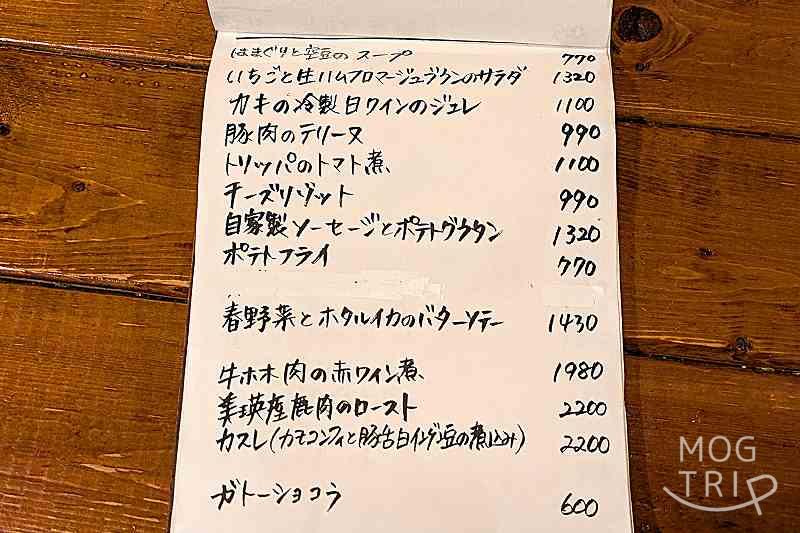 はまぐりと空豆のスープ 770
いちごと生ハムフロマージュブランのサラダ 1320
カキの冷製白ワインのジュレ 1100
豚肉のテリーヌ 990
トリッパのトマト煮 1100
チーズリゾット 990
自家製ソーセージとポテトグラタン 1320
ポテトフライ 770
春野菜とホタルイカのバターソテー 1430
牛ホホ肉の赤ワイン煮 1980
美瑛産鹿肉のロースト 2200
カスレ(カモコンフィと豚舌白インゲン豆の煮込み) 2200
ガトーショコラ 600
MOG
TRIP